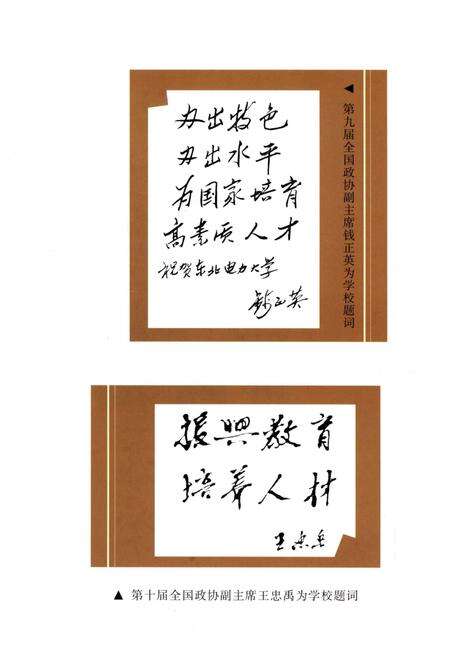 办出特色
办出水平
为国家培育
高素质人才
祝贺东北电力大学
钱正英
第九届全国政协副主席钱正英为学校题词
振興教育
培养人材
王忠禹
▲ 第十届全国政协副主席王忠禹为学校题词